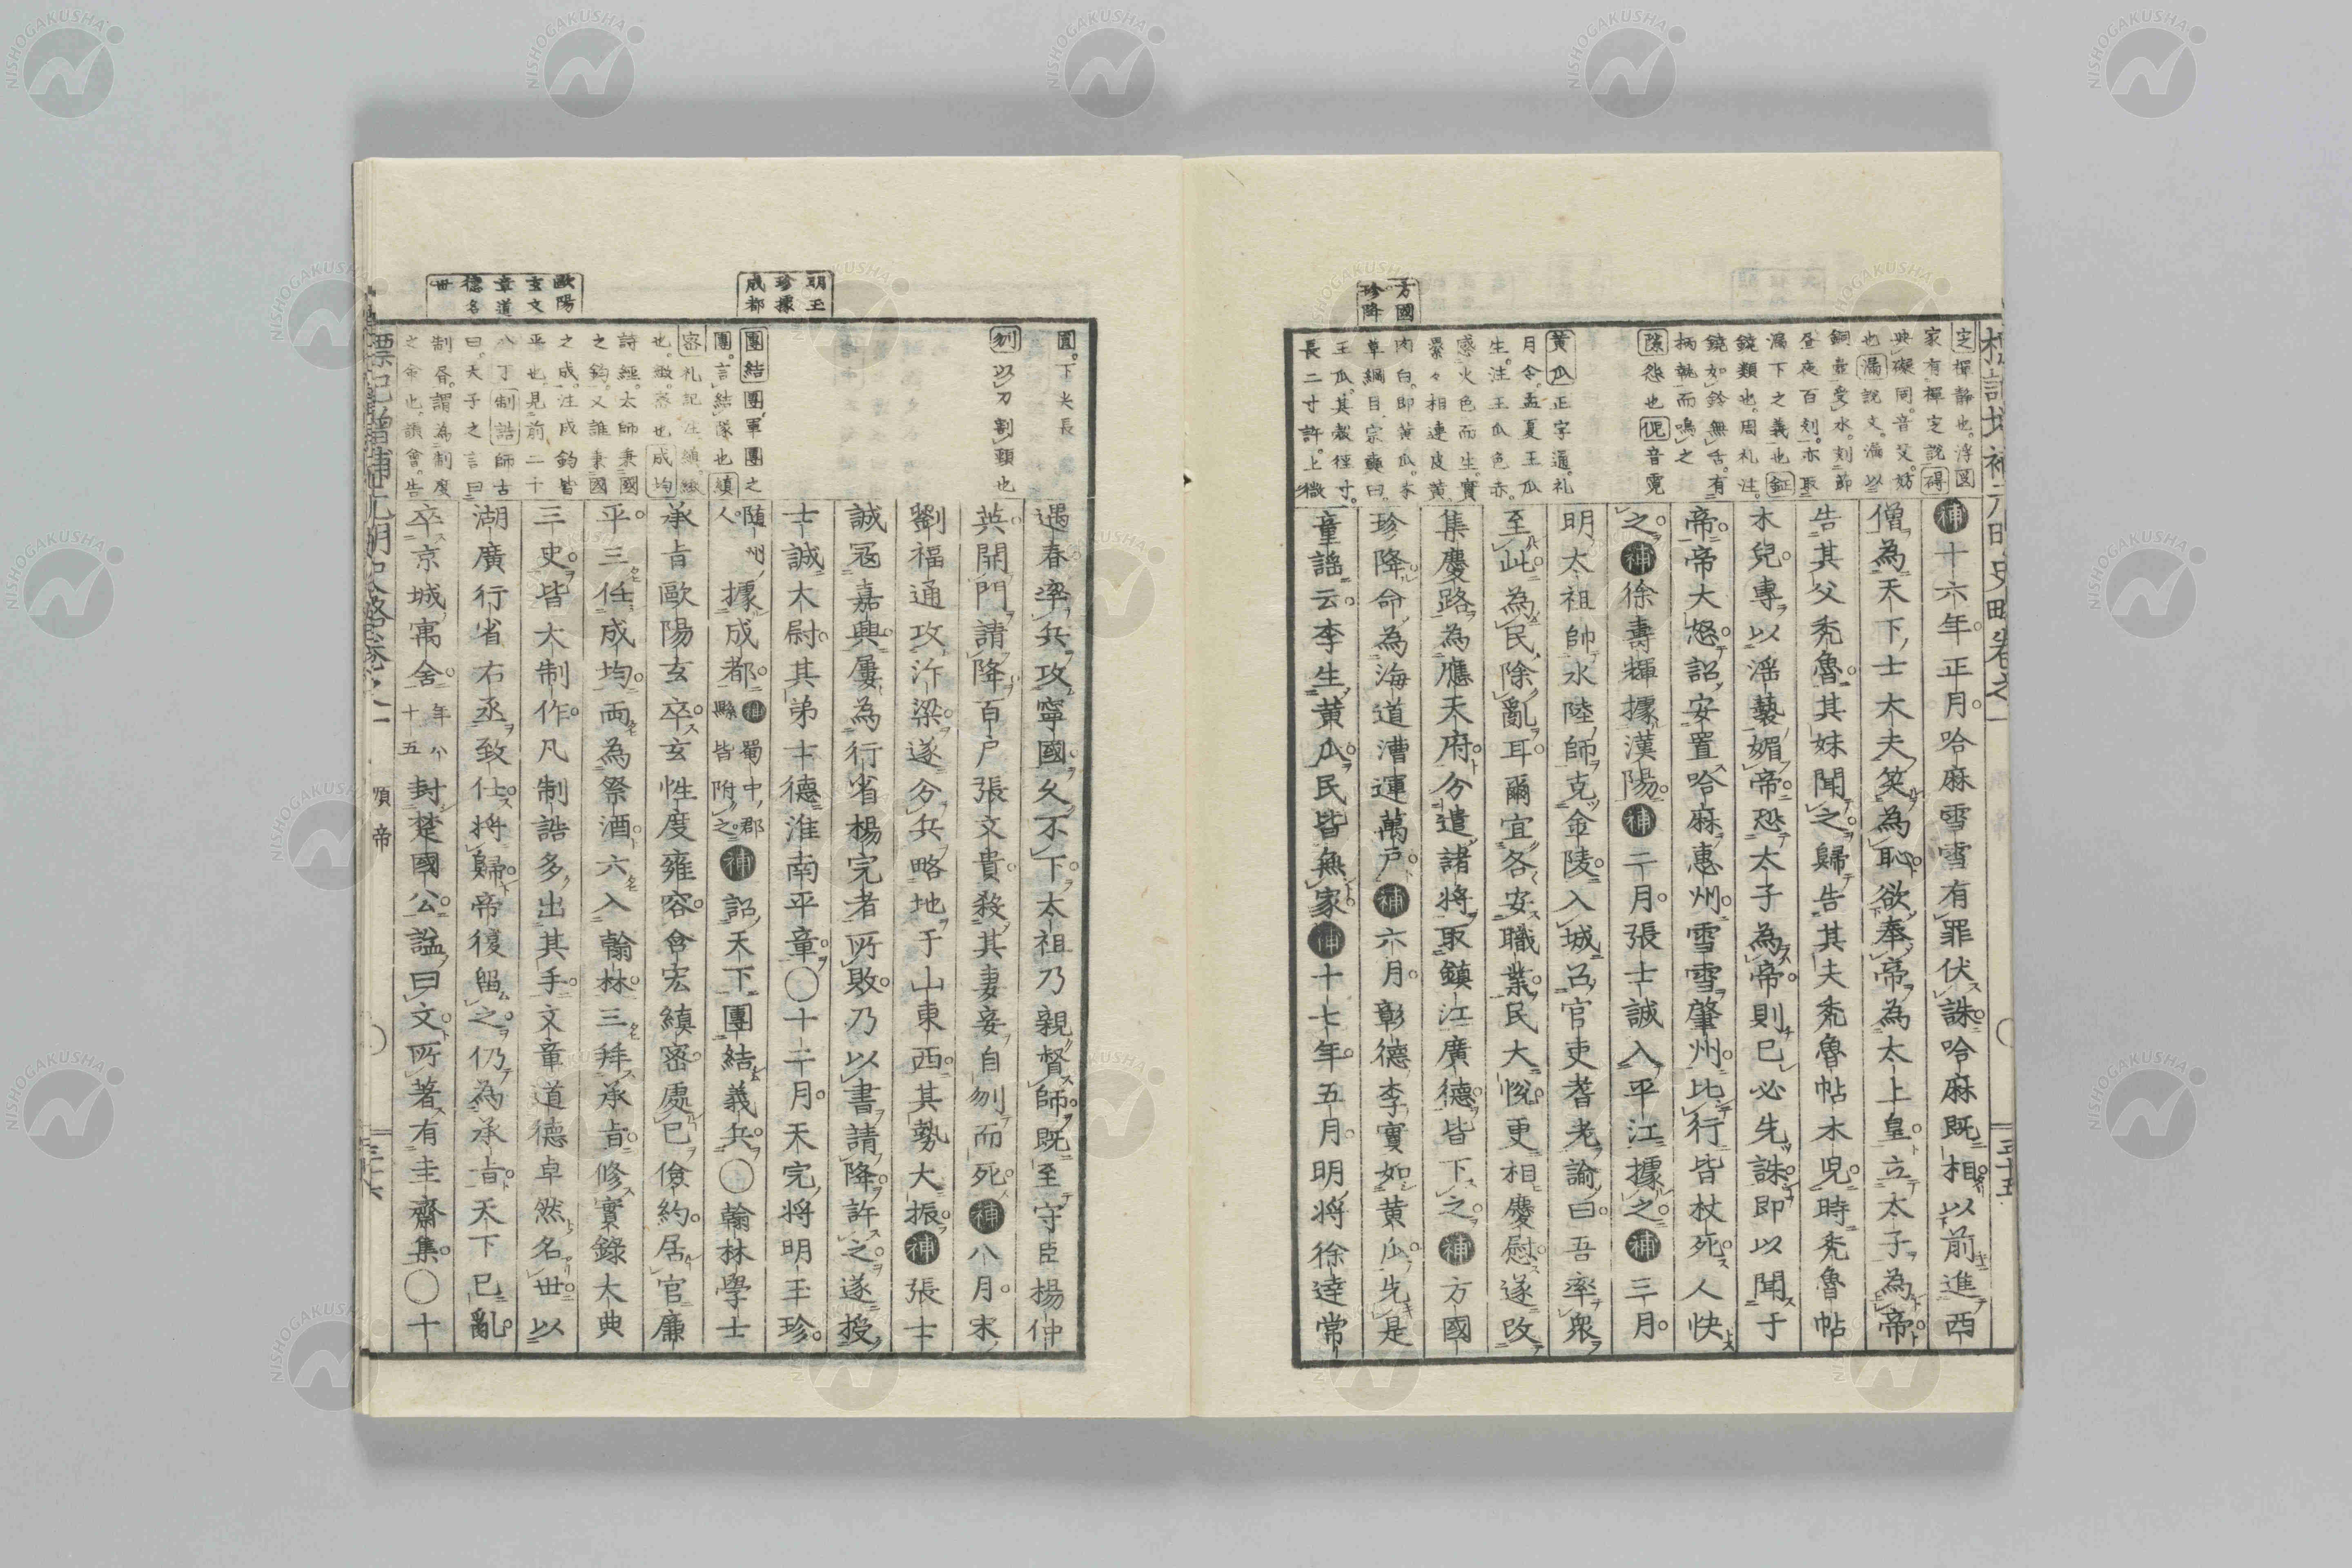 方國
珍降
定禪靜也。浮図
家有禪定說碍
與礙同。音艾。妨
也漏說文。漏以
銅壷受水。刻節
昼夜百刻。亦取
漏下之義也鉦
鐃類也。周礼注。
鐃如鈴無舌。有
柄執而鳴之
隙怨也俔音霓
黄瓜正字通。礼
月令。孟夏王瓜
生。注王瓜色赤。
感火色而生。實
纍々相連皮黄。
肉白。即黄瓜。本
草綱目。宗奭曰。
王瓜。其殻徑寸。
長二寸許。上微
補十六年。正月。哈麻雪雪有罪伏誅。哈麻既相以前進西
僧為天下士大夫笑為恥。欲奉帝為太上皇。立太子為帝。
告其父禿魯。其妹聞之。歸告其夫禿魯帖木児。時禿魯帖
木兒。專以淫褻媚帝。恐太子為帝。則已必先誅。即以聞于
帝。帝大怒。詔安置哈麻惠州。雪雪肇州。比行皆杖死。人快
之。補徐壽輝據漢陽。補二月。張士誠入平江據之。補三月。
明太祖帥水陸師克金陵。入城召官吏耆老諭曰。吾率衆
至此。為民除亂耳。爾宜各安職業。民大悅。更相慶慰。遂改
集慶路為應天府。分遣諸将取鎮江廣德。皆下之。補方國
珍降命為海道漕運萬戸。補六月。彰德李實如黄瓜。先是
童謡云。李生黄瓜。民皆無家。補十七年。五月。明将徐達常
三十五
明玉
珍據
成都
歐陽
玄文
章道
德名
世
圓。下尖長
刎以刀割頸也
團結團軍團之
團。言結隊也縝
密礼記注縝緻
也。緻密也成均
詩經。太師秉國
之鈞。又誰秉國
之成。注成鈞皆
平也。見前二十
八丁制誥師古
曰。天子之言曰
制昏。謂為制度
之命也。韻會。告
遇春率兵攻寧國。久不下。太祖乃親督師。既至守臣楊仲
英開門請降。百戸張文貴。殺其妻妾。自刎而死。補八月。宋
劉福通攻汴梁。遂分兵略地于山東西。其勢大振。補張士
誠冦嘉興。屢為行省楊完者所敗。乃以書請降。許之。遂授
士誠太尉。其弟士德淮南平章。〇十二月。天完将明玉珍。
隨州人。據成都。補蜀中郡縣皆附之。補詔天下團結義兵。〇翰林學士
承旨歐陽玄卒。玄性度雍容。含宏縝密。處已儉約。居官廉
平。三任成均。両為祭酒。六入翰林。三拜承旨。修實錄大典
三史。皆大制作。凡制誥多出其手。文章道德卓然名世。以
湖廣行省右丞致仕。将歸。帝復留之。仍為承旨。天下已亂。
卒京城寓舍。年八十五封楚國公。謚曰文。所著有圭齋集。〇十
標記増補元明史略卷之一
順帝
三十六